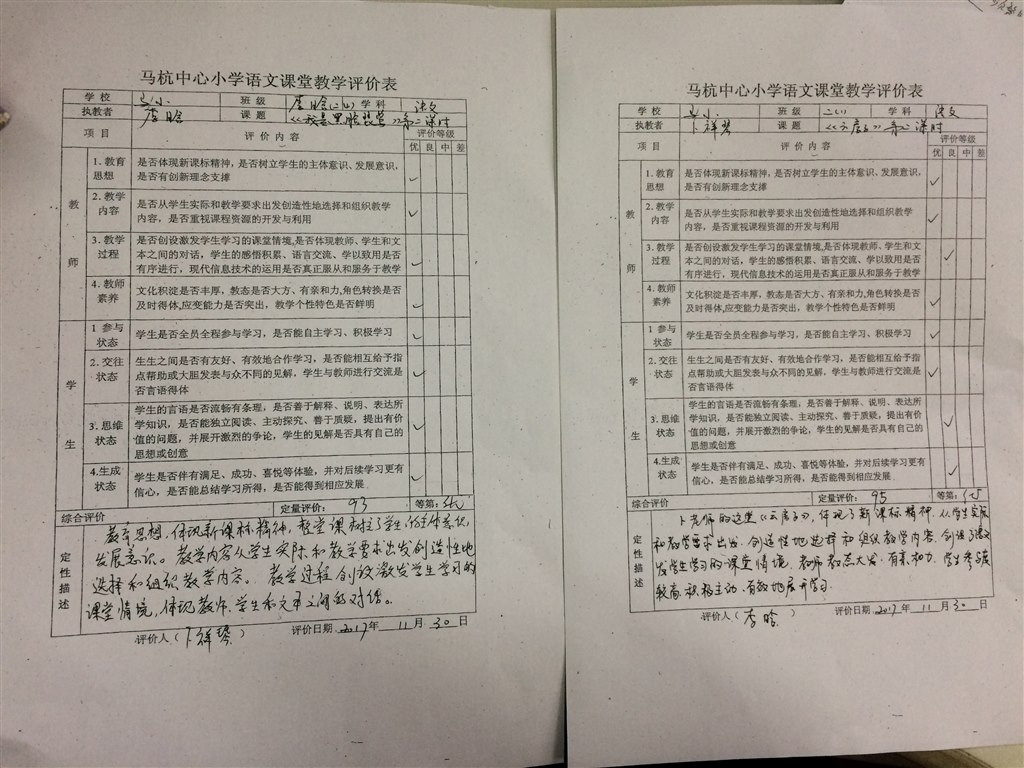 马杭中心小学语文课堂教学评价表
学 校 马小 班 级 二(1) 学 科 语文
执教者 课 题 第二课时
项 目 评 价 内 容 评价等级
优 良 中 差
教师
1. 教育思想 是否体现新课标精神，是否树立学生的主体意识、发展意识，
是否有创新理念支撑 ✓
2. 教学内容 是否从学生实际和教学要求出发创造性地选择和组织教学
内容，是否重视课程资源的开发与利用 ✓
3. 教学过程 是否创设激发学生学习的课堂情境,是否体现教师、学生和文
本之间的对话，学生的感悟积累、语言交流、学以致用是否
有序进行，现代信息技术的运用是否真正服从和服务于教学 ✓
4. 教师素养 文化积淀是否丰厚，教态是否大方、有亲和力,角色转换是否
及时得体,应变能力是否突出，教学个性特色是否鲜明 ✓
学生
1 参与状态 学生是否全员全程参与学习，是否能自主学习、积极学习 ✓
2. 交往状态 生生之间是否有友好、有效地合作学习，是否能相互给予指
点帮助或大胆发表与众不同的见解，学生与教师进行交流是
否言语得体 ✓
3. 思维状态 学生的言语是否流畅有条理，是否善于解释、说明、表达所
学知识，是否能独立阅读、主动探究、善于质疑，提出有价
值的问题，并展开激烈的争论，学生的见解是否具有自己的
思想或创意 ✓
4.生成状态 学生是否伴有满足、成功、喜悦等体验，并对后续学习更有
信心，是否能总结学习所得，是否能得到相应发展 ✓
综合评价 定量评价： 93 等第： 优
定性描述
教育思想，体现新课标精神，整堂课树立了学生的主体意识、
发展意识。教学内容从学生实际和教学要求出发创造性地
选择和组织教学内容。教学过程创设激发学生学习的
课堂情境，体现教师、学生和文本之间的对话。
评价人（卜祥琴） 评价日期 2017年 11月 30日
马杭中心小学语文课堂教学评价表
学 校 马小 班 级 二(1) 学 科 语文
执教者 卜祥琴 课 题 第二课时
项 目 评 价 内 容 评价等级
优 良 中 差
教师
1. 教育思想 是否体现新课标精神，是否树立学生的主体意识、发展意识，
是否有创新理念支撑 ✓
2. 教学内容 是否从学生实际和教学要求出发创造性地选择和组织教学
内容，是否重视课程资源的开发与利用 ✓
3. 教学过程 是否创设激发学生学习的课堂情境,是否体现教师、学生和文
本之间的对话，学生的感悟积累、语言交流、学以致用是否
有序进行，现代信息技术的运用是否真正服从和服务于教学 ✓
4. 教师素养 文化积淀是否丰厚，教态是否大方、有亲和力,角色转换是否
及时得体,应变能力是否突出，教学个性特色是否鲜明 ✓
1 参与状态 学生是否全员全程参与学习，是否能自主学习、积极学习 ✓
学生
2. 交往状态 生生之间是否有友好、有效地合作学习，是否能相互给予指
点帮助或大胆发表与众不同的见解，学生与教师进行交流是
否言语得体 ✓
3. 思维状态 学生的言语是否流畅有条理，是否善于解释、说明、表达所
学知识，是否能独立阅读、主动探究、善于质疑，提出有价
值的问题，并展开激烈的争论，学生的见解是否具有自己的
思想或创意 ✓
4.生成状态 学生是否伴有满足、成功、喜悦等体验，并对后续学习更有
信心，是否能总结学习所得，是否能得到相应发展 ✓
综合评价 定量评价： 95 等第： 优
定性描述
卜老师的这堂，体现了新课标精神，从学生实际
和教学要求出发，创造性地选择和组织教学内容，创设了激
发学生学习的课堂情境，教师教态大方，有亲和力，学生参与度
较高，积极主动，有效地展开学习。
评价人（ ） 评价日期 2017年 11月 30日